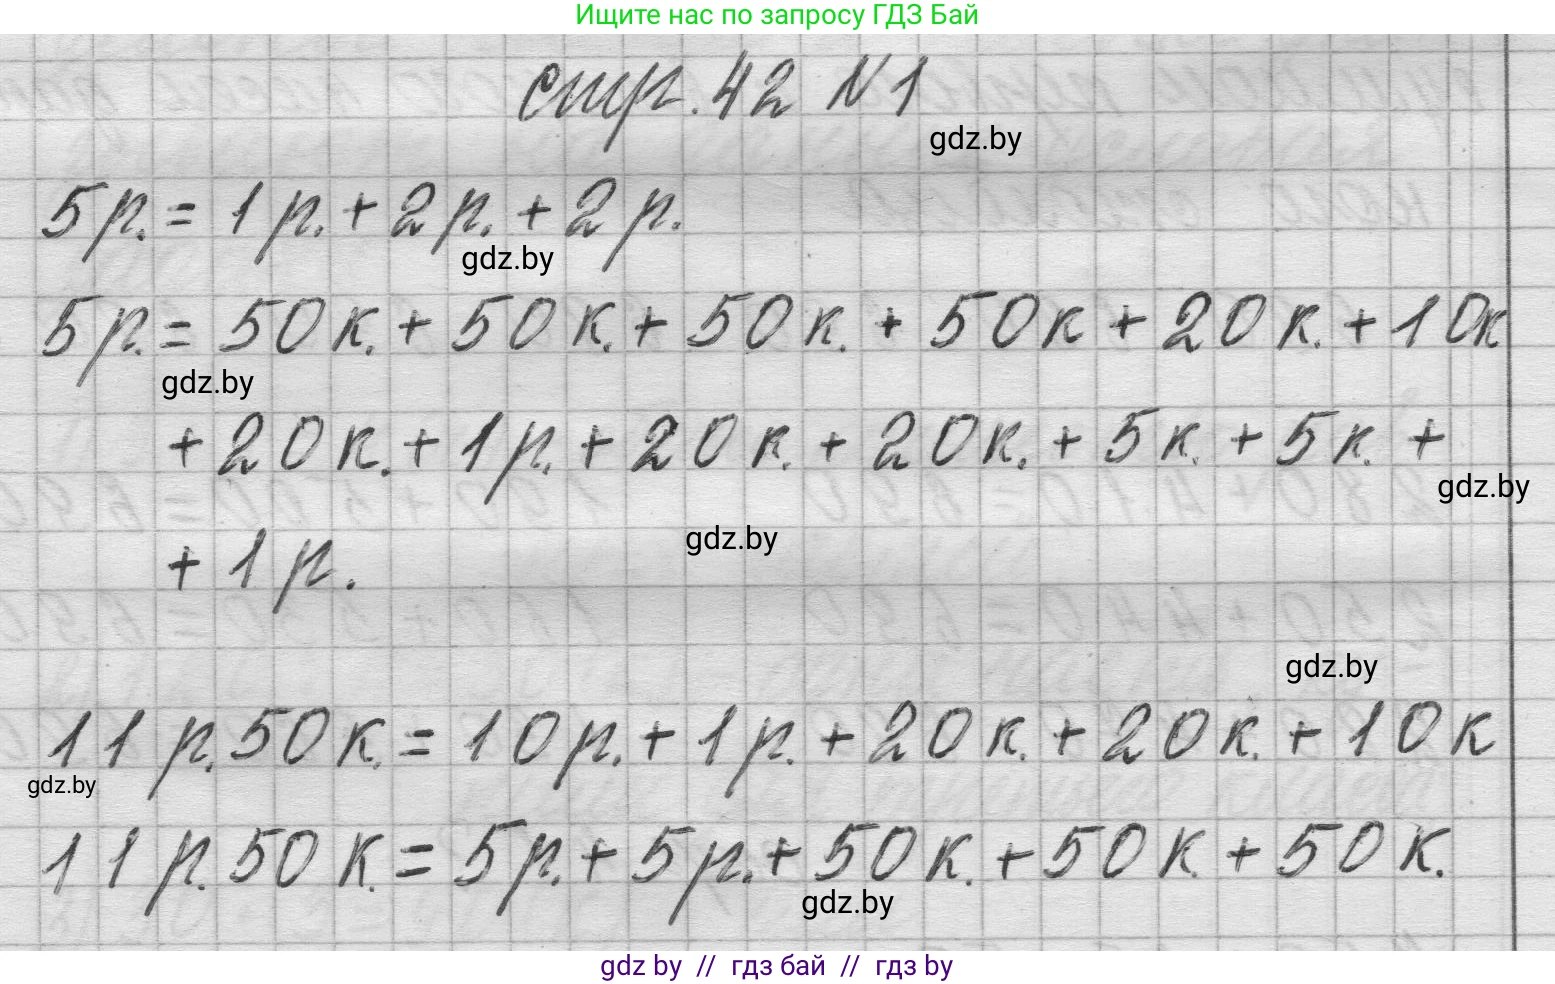 Ищите нас по запросу ГДЗ Бай
стр. 42 №1
gdz.by
5 р. = 1 р. + 2 р. + 2 р.
gdz.by
5 р. = 50 к. + 50 к. + 50 к. + 50 к + 20 к. + 10к
gdz.by
+ 20 к. + 1 р. + 20 к. + 20 к. + 5 к. + 5 к. +
gdz.by
gdz.by
+ 1 р.
gdz.by
11 р. 50 к. = 10 р. + 1 р. + 20 к. + 20 к. + 10 к
gdz.by
11 р. 50 к. = 5 р. + 5 р. + 50 к. + 50 к. + 50 к.
gdz.by
gdz by // гдз бай // гдз by